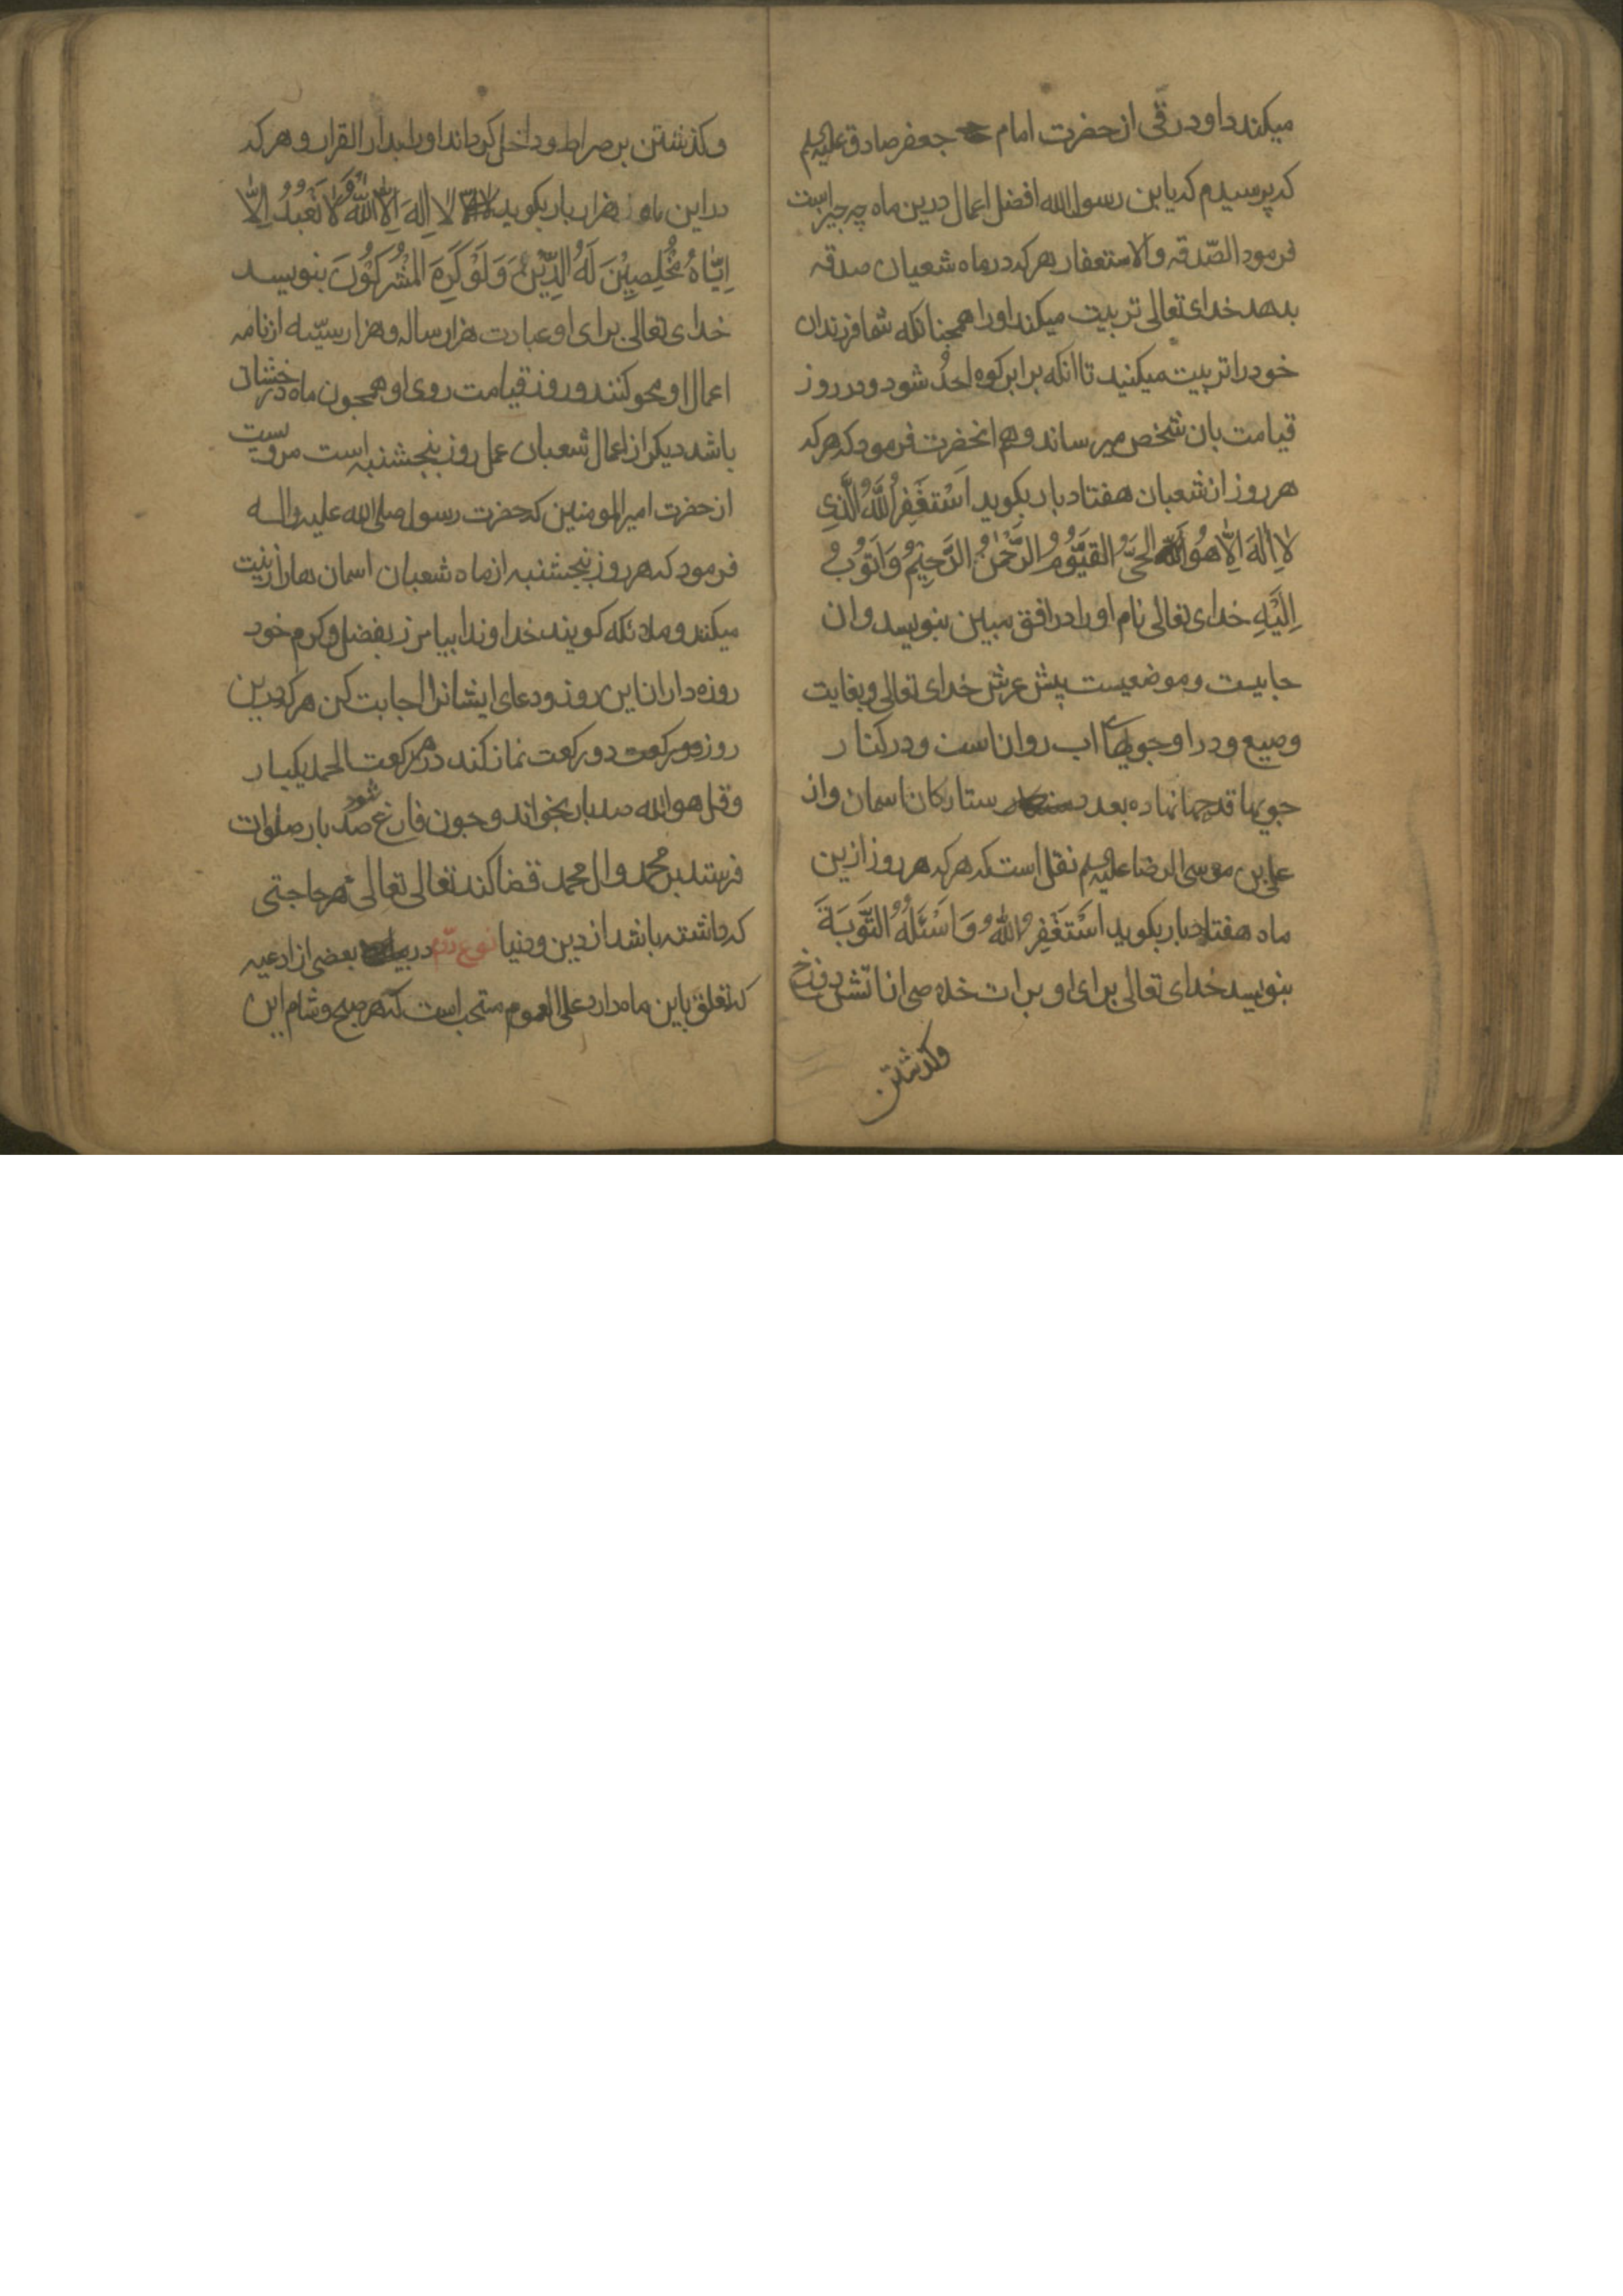 میکند داود رقی از حضرت امام جعفر صادق علیه السلم
که پرسیدم که یا بن رسول الله افضل اعمال درین ماه چه چیز است
فرمود الصّدقه والاستعفار هر که در ماه شعبان صدقه
بدهد خدای تعالی تربیت میکند اورا همچنانکه شما فرزندان
خود را تربیت میکنید تا انکه برابر کوه احدُ شود و در روز
قیامت بان شخص میرساند و هم انحضرت فرمود که هر که
هر روز از شعبان هفتاد بار بکوید اَسْتَغْفِرُ اللّٰهَ الَّذِی
لا اِلٰهَ اِلّا هُوَ الحَیُّ القَیُّومُ الرَّحْمٰنُ الرَّحیِمُ وَ اَتُوبُ
اِلَیْهِ خدای تعالی نام او را در افق مبین بنویسد و ان
جاییست و موضعیست پیش عرش خدای تعالی و بغایت
وصیع و در او جویهای اب روان است و در کنار
جویها قدحها نهاده بعدد ستارکان اسمان و از
علی بن موسی الرضا علیه السلم نقل است که هر که هر روز ازین
ماه هفتاد بار بکوید اَسْتَغْفِرُ اللّٰهَ وَ اَسْئَلُهُ التَّوبَةَ
بنویسد خدای تعالی برای او برات خلاصی از اتش دوزخ
وکذشتن
وکذشتن بر صراط و داخل کرداند او را بدار القرار و هر که
در این ماه هزار بار بکوید لا اِلٰهَ اِلَّا اللّٰهُ وَلا نَعْبُدُ اِلّا
اِیّاهُ مُخْلِصِیْنَ لَهُ الدِّیْنَ وَلَوْ کَرِهَ المُشْرِکُوْنَ بنویسد
خدای تعالی برای او عبادت هزار ساله و هزار سیّئه از نامه
اعمال او محو کنند و روز قیامت روی او همچون ماه درخشان
باشد دیکر از اعمال شعبان عمل روز پنجشنبه است مرویست
از حضرت امیر المومنین که حضرت رسول صلی الله علیه واله
فرمود که هر روز پنجشنبه از ماه شعبان اسمان ها را زینت
میکند و ملائکه کویند خداوندا بیامرز بفضل و کرم خود
روزه داران این روز و دعای ایشانرا اجابت کن هر که درین
روز دو رکعت نماز کند در هر رکعت الحمد یکبار
و قل هو الله صد بار بخواند و چون فارغ شود صد بار صلوات
فرستد بر محمد وال محمد قضا کند تعالی تعالی هر حاجتی
که داشته باشد از دین و دنیا نوع در بیان بعضی از ادعیه
که تعلق باین ماه دارد علی العموم مستحب است که هر صبح و شام این